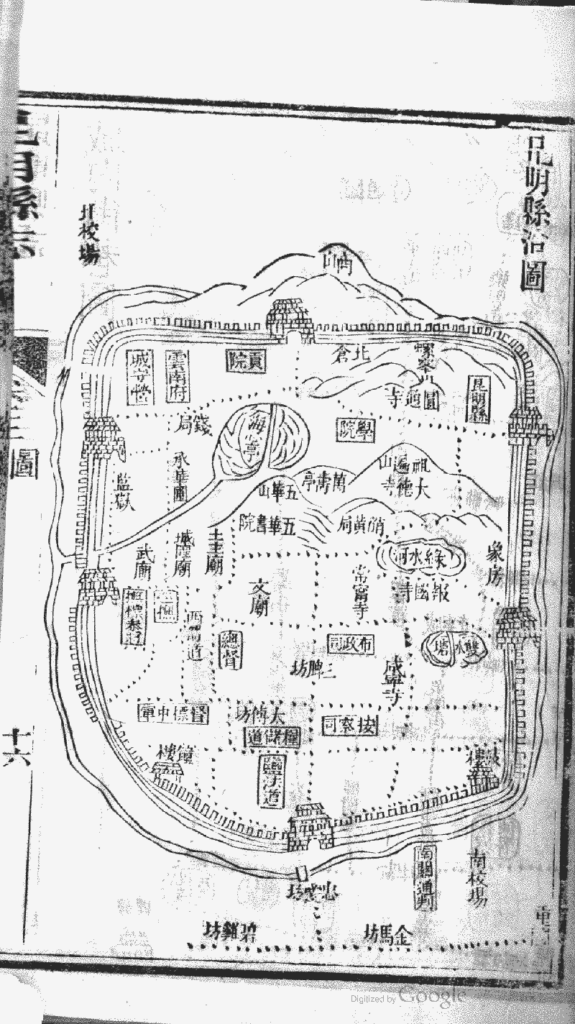 昆明縣治圖
昆明縣志
圖
十六
商山
北倉
螺峯山
圓通寺
昆明縣
貢院
雲南府
城守營
錢局
海心亭
學院
承華圃
監獄
祖遍山
大德寺
萬壽亭
五華山
五華書院
硝黃局
綠水河
報國寺
象房
土主廟
城隍廟
武廟
文廟
常寧寺
雙水塘
咸寧寺
布政司
三牌坊
總督
西道
督標中軍
太傅坊
糧儲道
按察司
鹽法道
鐘樓
鼓樓
南關通判
南校場
忠愛坊
金馬坊
碧雞坊
Digitized by Google